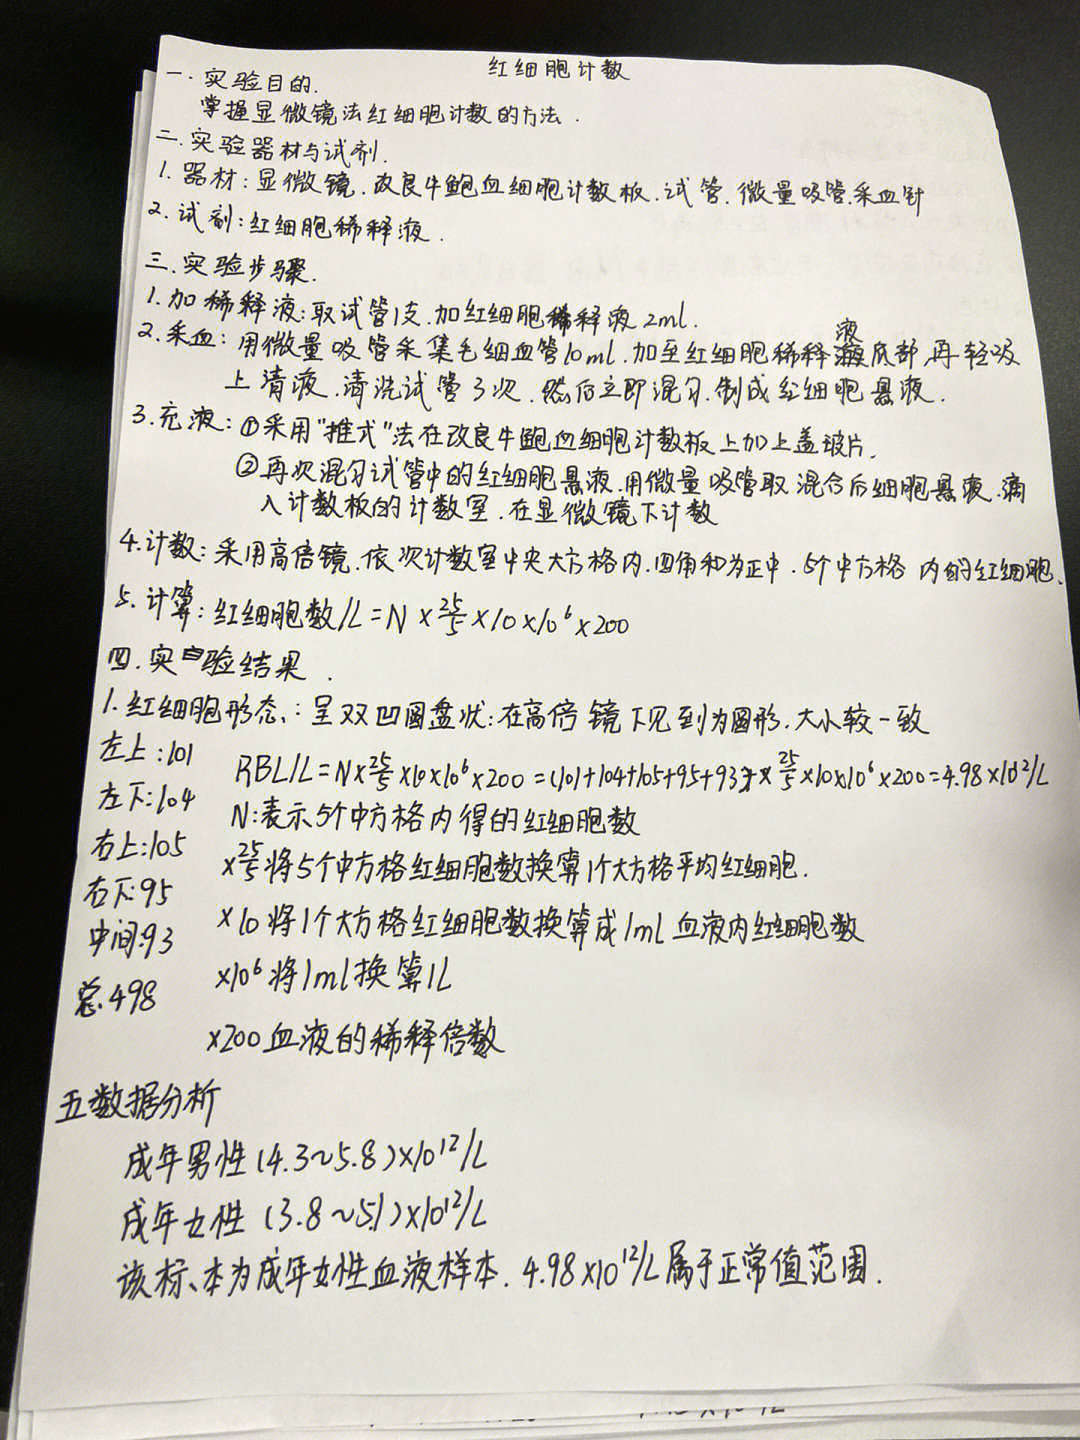 红细胞计数
一.实验目的.
掌握显微镜法红细胞计数的方法.
二.实验器材与试剂.
1.器材:显微镜.改良牛鲍血细胞计数板.试管.微量吸管.采血针
2.试剂:红细胞稀释液.
三.实验步骤.
1.加稀释液:取试管1支.加红细胞稀释液2ml.
2.采血:用微量吸管采集毛细血管10ml.加至红细胞稀释液底部,再轻吸
上清液.清洗试管3次.然后立即混匀.制成红细胞悬液.
3.充液:①采用"推式"法在改良牛鲍血细胞计数板上加上盖玻片.
②再次混匀试管中的红细胞悬液.用微量吸管取混合后细胞悬液.滴
入计数板的计数室.在显微镜下计数
4.计数:采用高倍镜.依次计数室中央大方格内.四角和为正中.5个中方格内的红细胞.
5.计算:红细胞数/L=N×25/5×10×10⁶×200
四.实验结果.
1.红细胞形态:呈双凹圆盘状:在高倍镜下见到为圆形.大小较一致
左上:101
RBL/L=N×25/5×10×10⁶×200=(101+104+105+95+93)×25/5×10×10⁶×200=4.98×10¹²/L
左下:104
N:表示5个中方格内得的红细胞数
右上:105
×25/5将5个中方格红细胞数换算1个大方格平均红细胞.
右下:95
×10将1个大方格红细胞数换算成1ml血液内红细胞数
中间:93
×10⁶将1ml换算1L
总.498
×200血液的稀释倍数
五数据分析
成年男性(4.3~5.8)×10¹²/L
成年女性(3.8~5.1)×10¹²/L
该标本为成年女性血液样本.4.98×10¹²/L属于正常值范围.